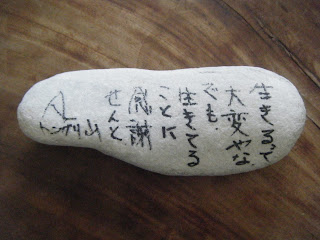 生きるって
大変やな
でも
生きてる
ことに
感謝
せんと
トンガリ山